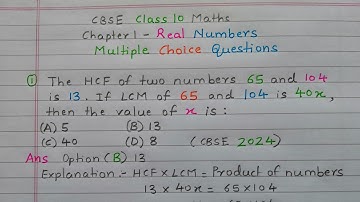 CBSE Class 10 Maths
Chapter 1 - Real Numbers
Multiple Choice Questions
① The HCF of two numbers 65 and 104
is 13. If LCM of 65 and 104 is 40x,
then the value of x is :
(A) 5 (B) 13
(C) 40 (D) 8 (CBSE 2024)
Ans Option (B) 13
Explanation - HCF × LCM = Product of numbers
13 × 40x = 65 × 104